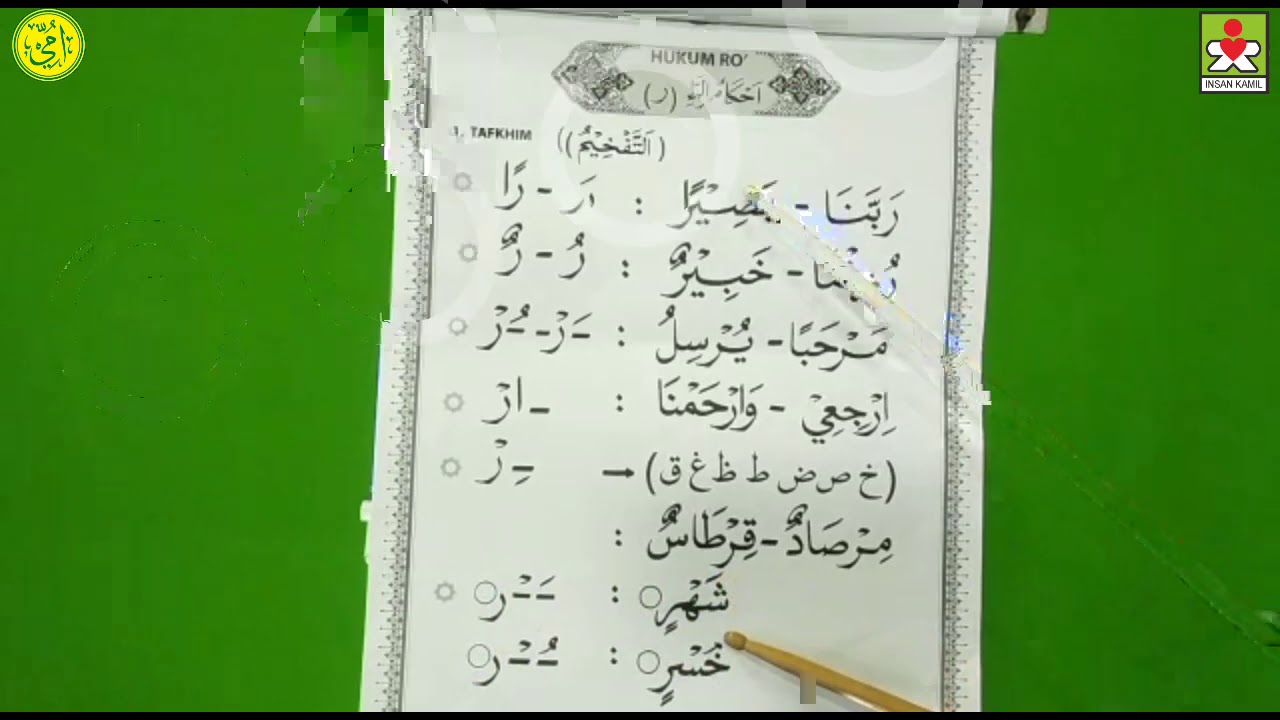 اُمِّيّ
INSAN KAMIL
HUKUM RO'
اَحْكَامُ الرَّاءِ (ر)
1. TAFKHIM (اَلتَّفْخِيْمُ)
رَبَّنَا - بَصِيْرًا : رَ - رًا
خَبِيْرٌ : رُ - رٌ
مَرْحَبًا - يُرْسِلُ : ـَرْ - ـُرْ
اِرْجِعِيْ - وَارْحَمْنَا : ـ ارْ
(خ ص ض ط ظ غ ق) → ـِرْ
مِرْصَادٌ - قِرْطَاسٌ :
شَهْرٍ○ : ـَـْر○
خُسْرٍ○ : ـُـْر○